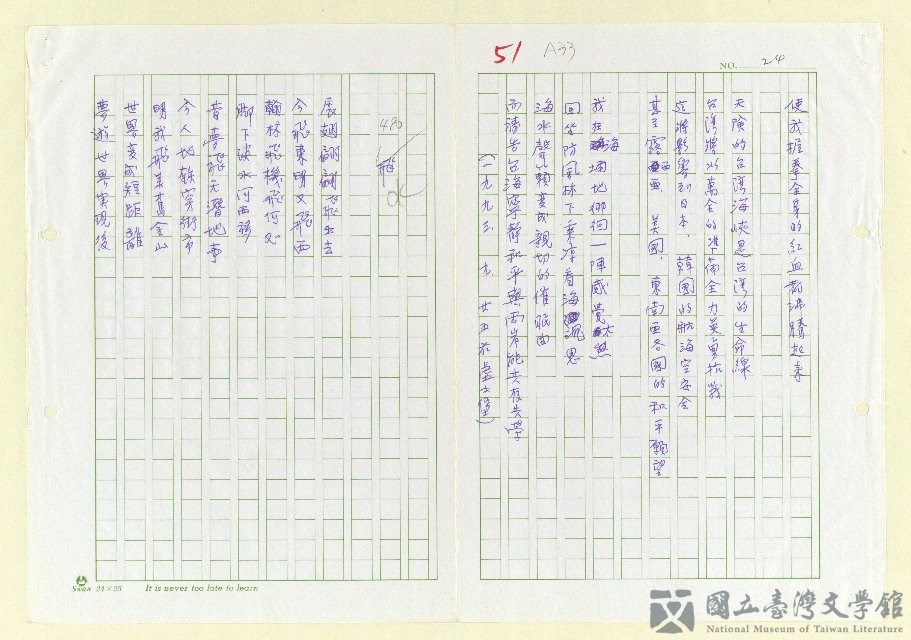 51 A33
NO. 24
使我握拳全身的紅血都沸騰起來
天險的台灣海峽是台灣的生命線
台灣將以萬全的準備全力英勇抗戰
這將影響到日本、韓國的航海空安全
甚至露西亞、美國、東南亞各國的和平願望
我在海埔地徘徊一陣感覺太熱
回坐防風林下乘凉看海沉思
海水聲籟變成親切的催眠曲
而禱告台海寧靜和平與兩岸能共存共榮
(一九九三、九、廿五於
480
飛
展翅翩翩飛出去
今飛東明又飛西
翰林飛機飛何處
腳下淡水河西移
昔夢飛天潛地事
今人地鉄穿街市
明我飛美舊金山
世界變成短距離
夢遊世界實現後
SWAN 24×25 It is never too late to learn
國立臺灣文學館
National Museum of Taiwan Literature